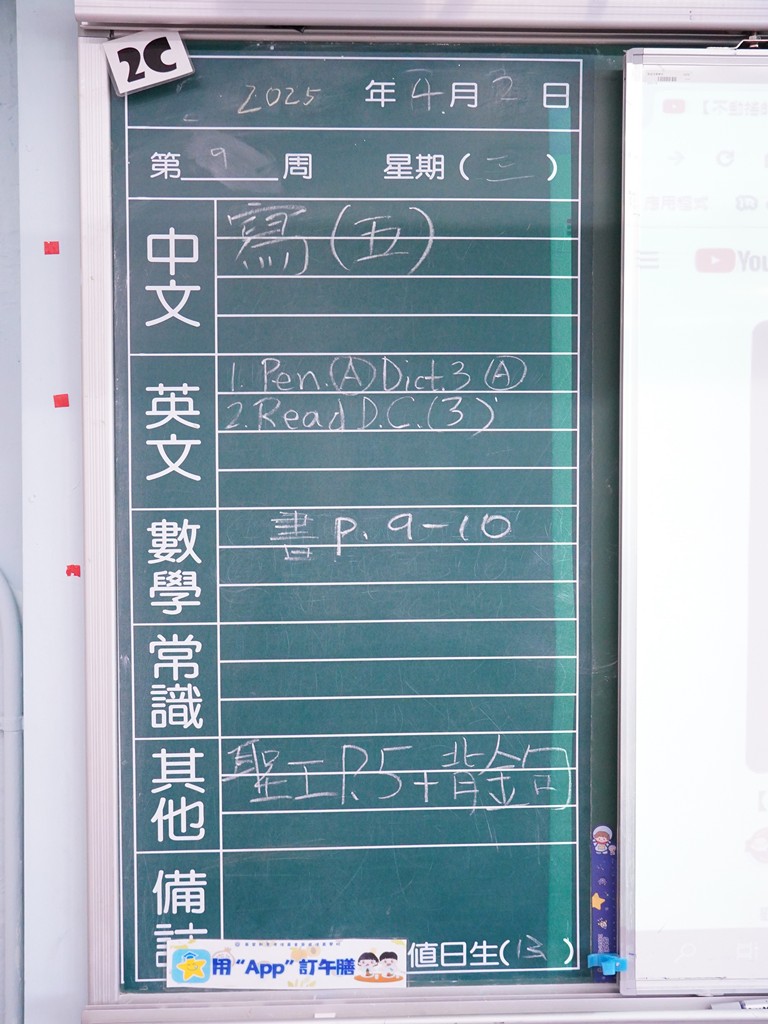 2C
2025 年 4 月 2 日
第 9 周 星期 ( 三 )
中文
寫 (五)
英文
1. Pen. Ⓐ Dict. 3 Ⓐ
2. Read D.C. (3)
數學
書 p. 9-10
常識
其他
聖工 P.5 + 背金句
備註
值日生( 13 )
用 “App” 訂午膳
You